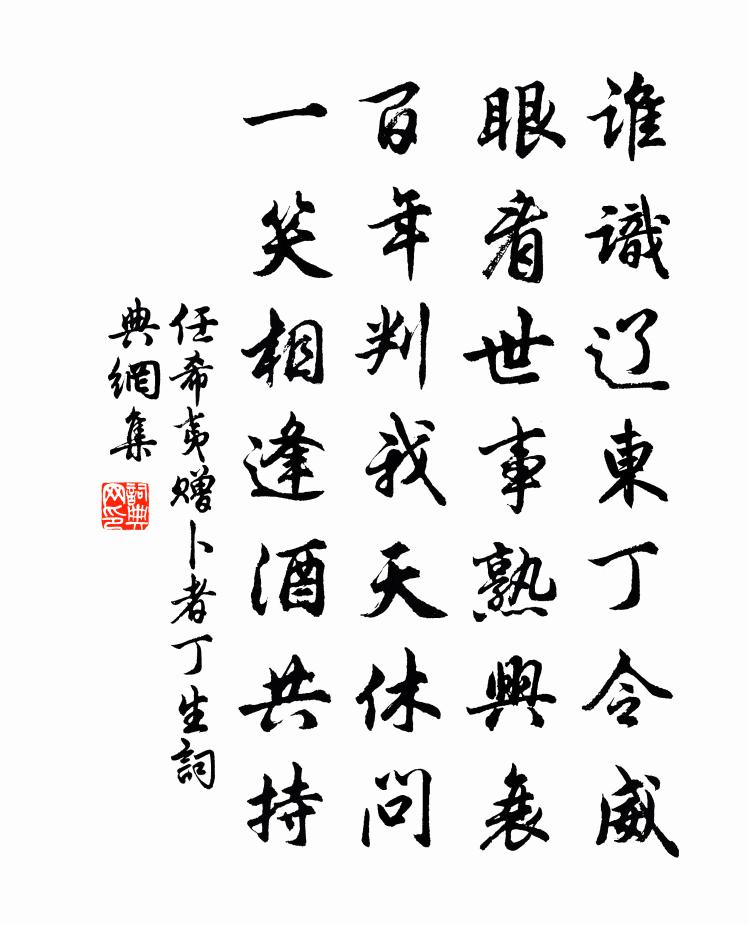 谁識辽東丁令威
眼看世事熟興衰
百年判我天休問
一笑相逢酒共持
任希夷赠卜者丁生詞
典網集
詞典
网印